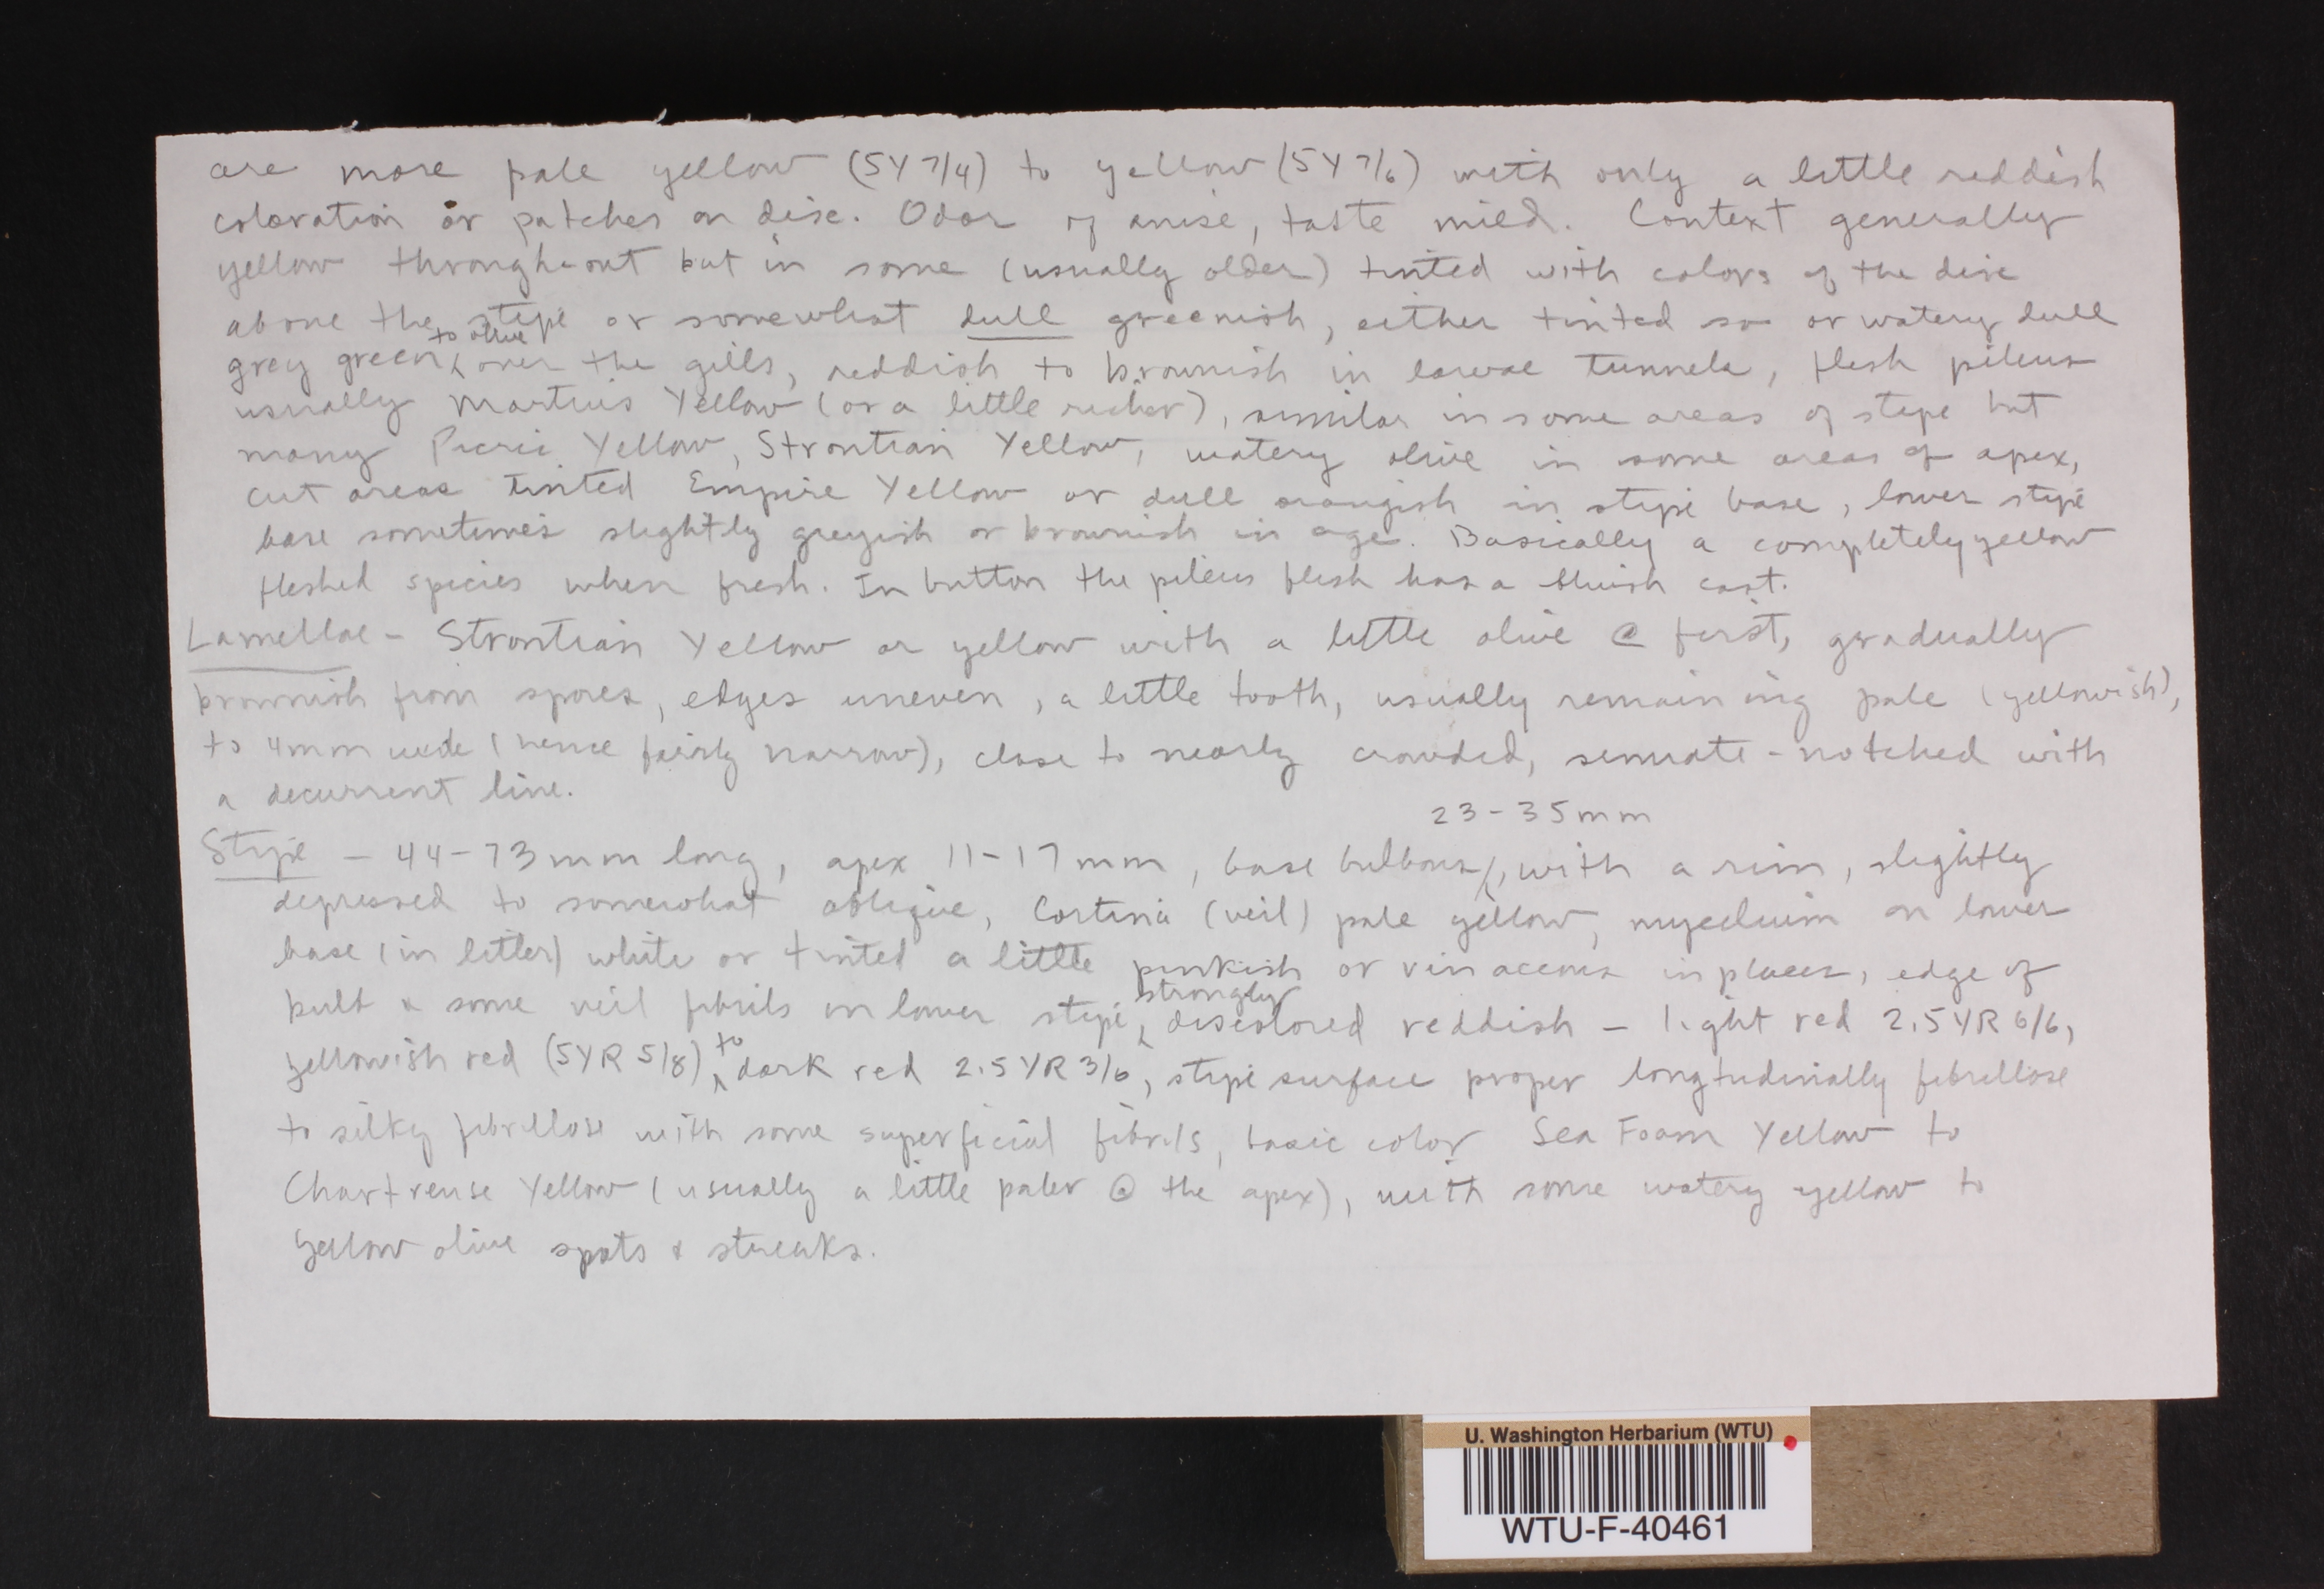 are more pale yellow (5Y 7/4) to yellow (5Y 7/6) with only a little reddish
coloration or patches on disc. Odor of anise, taste mild. Context generally
yellow throughout but in some (usually older) tinted with colors of the disc
above the stipe or somewhat dull greenish, either tinted so or watery dull
grey green to olive over the gills, reddish to brownish in larvae tunnels, flesh pileus
usually Martius Yellow (or a little richer), similar in some areas of stipe but
many Picric Yellow, Strontian Yellow, watery olive in some areas of apex,
cut areas tinted Empire Yellow or dull orangish in stipe base, lower stipe
base sometimes slightly greyish or brownish in age. Basically a completely yellow
fleshed species when fresh. In button the pileus flesh has a bluish cast.
Lamellae - Strontian Yellow or yellow with a little olive @ first, gradually
brownish from spores, edges uneven, a little tooth, usually remaining pale (yellowish),
to 4mm wide (hence fairly narrow), close to nearly crowded, sinuate-notched with
a decurrent line.
Stipe - 44-73mm long, apex 11-17mm, base bulbous, 23-35mm with a rim, slightly
depressed to somewhat oblique, Cortina (veil) pale yellow, mycelium on lower
base (in litter) white or tinted a little pinkish or vinaceous in places, edge of
bulb & some veil fibrils on lower stipe, strongly discolored reddish - light red 2.5YR 6/6,
yellowish red (5YR 5/8) to dark red 2.5YR 3/6, stipe surface proper longtudinally fibrillose
to silky fibrillose with some superficial fibrils, basic color Sea Foam Yellow to
Chartreuse Yellow (usually a little paler @ the apex), with some watery yellow to
yellow olive spots & streaks.
U. Washington Herbarium (WTU)
WTU-F-40461